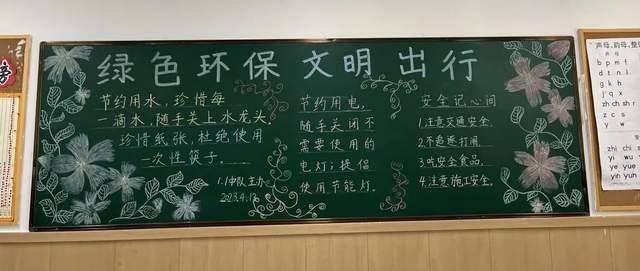 绿色环保 文明 出行
节约用水，珍惜每
一滴水，随手关上水龙头，
珍惜纸张，杜绝使用
一次性筷子.
1.1中队主办
2023.4.13
节约用电，
随手关闭不
需要使用的
电灯；提倡
使用节能灯.
安全记心间
1.注意交通安全.
2.不追逐打闹.
3.吃安全食品.
4.注意施工安全.
声母、韵母、整
b p m f
d t n l
g k h
j q x
zh ch sh r
z c s
y w
zhi chi s
yi wu
ye yue
yin yun